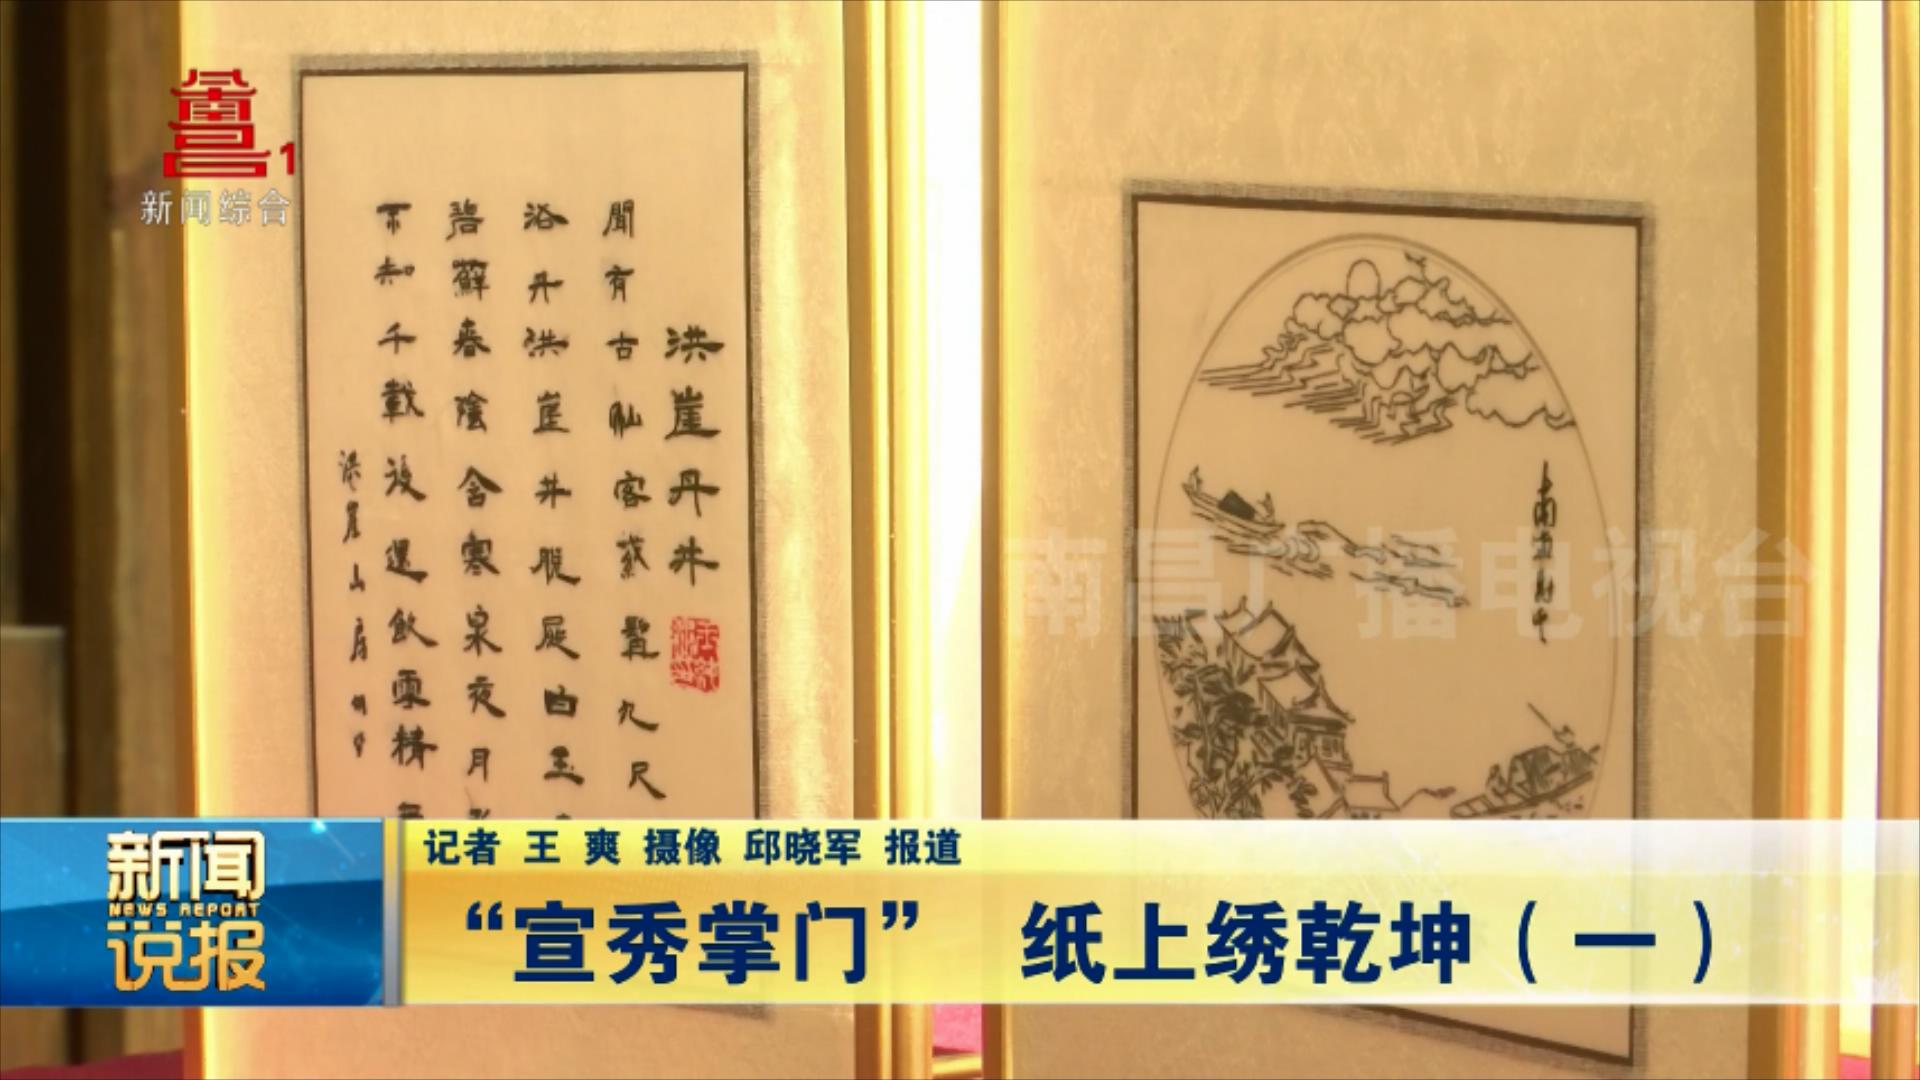 南昌1
新闻综合
洪崖丹井
聞有古仙客茲鑿九尺
浴丹洪崖井脫屣白玉
碧蘚春陰含寒泉夜月
不知千載後還飲雲精
洪崖山房
南浦
南昌广播电视台
新闻
NEWS REPORT
说报
记者 王 爽 摄像 邱晓军 报道
“宣秀掌门” 纸上绣乾坤（一）